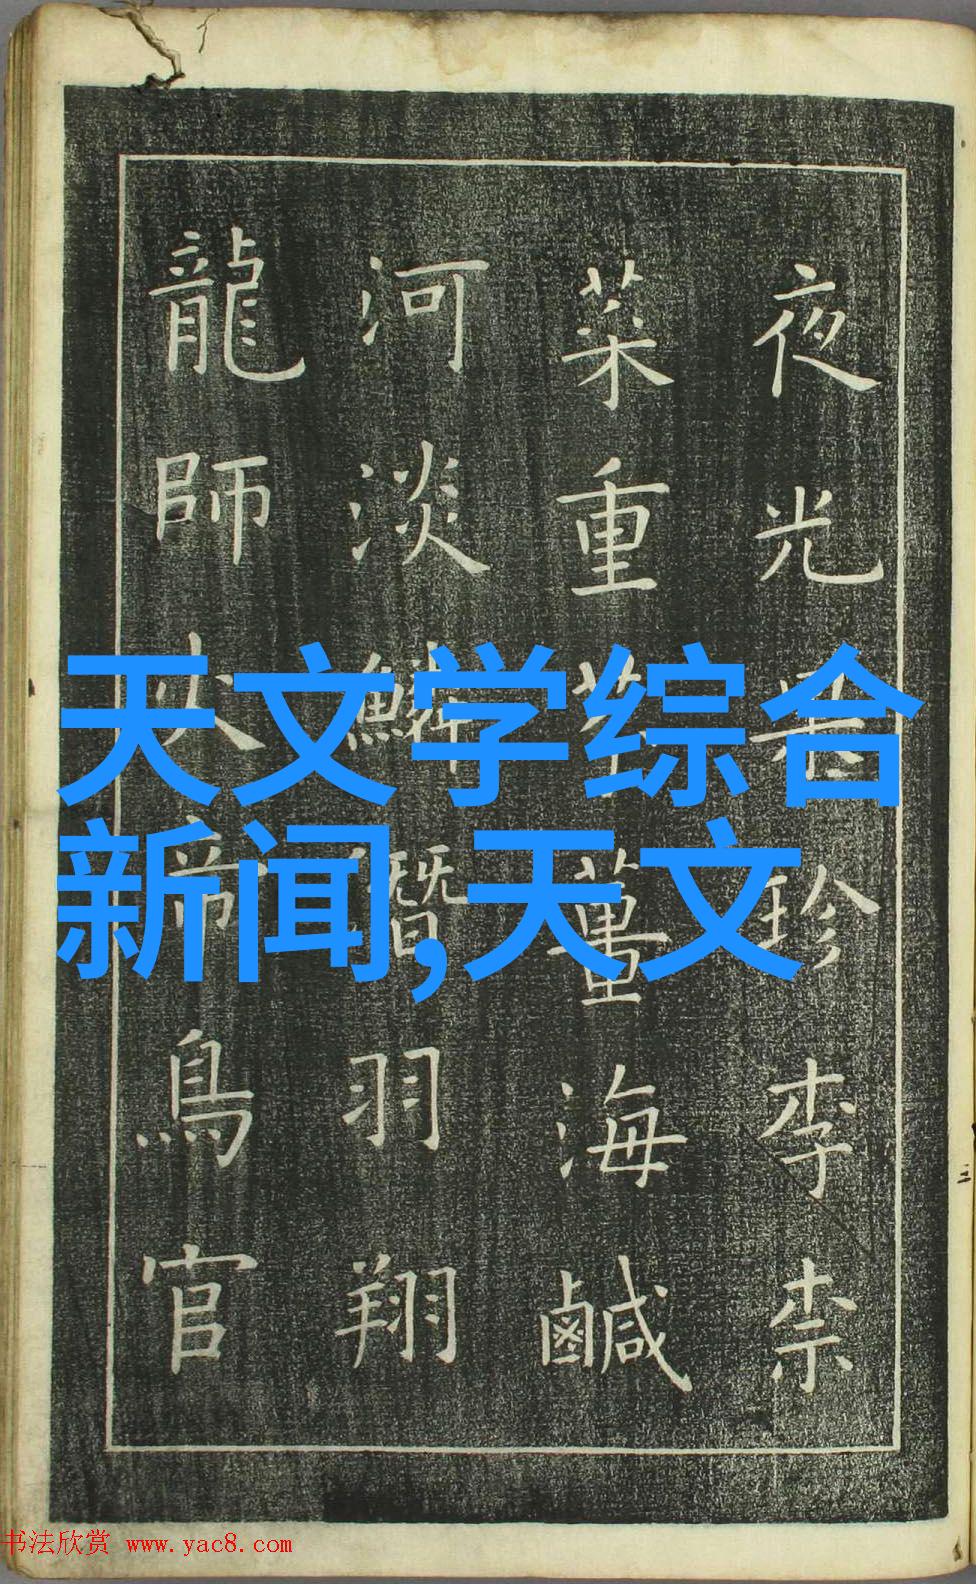 夜光果珍李柰
菜重芥薑海鹹
河淡鱗潛羽翔
龍師火帝鳥官
天文学综合
新闻,天文
书法欣赏 www.yac8.com